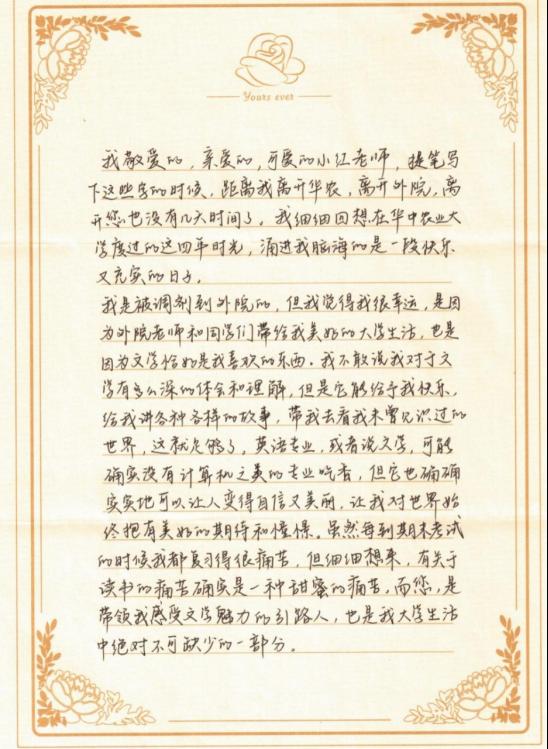 Yours ever
我敬爱的，亲爱的，可爱的小红老师，提笔写
下这些字的时候，距离我离开华农，离开外院，离
开您也没有几天时间了。我细细回想在华中农业大
学度过的这四年时光，涌进我脑海的是一段快乐
又充实的日子。
我是被调剂到外院的，但我觉得我很幸运，是因
为外院老师和同学们带给我美好的大学生活，也是
因为文学恰好是我喜欢的东西。我不敢说我对于文
学有多么深的体会和理解，但是它能给予我快乐，
给我讲各种各样的故事，带我去看我未曾见识过的
世界，这就足够了，英语专业，或者说文学，可能
确实没有计算机之类的专业吃香，但它也确确
实实地可以让人变得自信又美丽，让我对世界始
终抱有美好的期待和憧憬。虽然每到期末考试
的时候我都复习得很痛苦，但细细想来，有关于
读书的痛苦确实是一种甜蜜的痛苦，而您，是
带领我感受文学魅力的引路人，也是我大学生活
中绝对不可缺少的一部分。